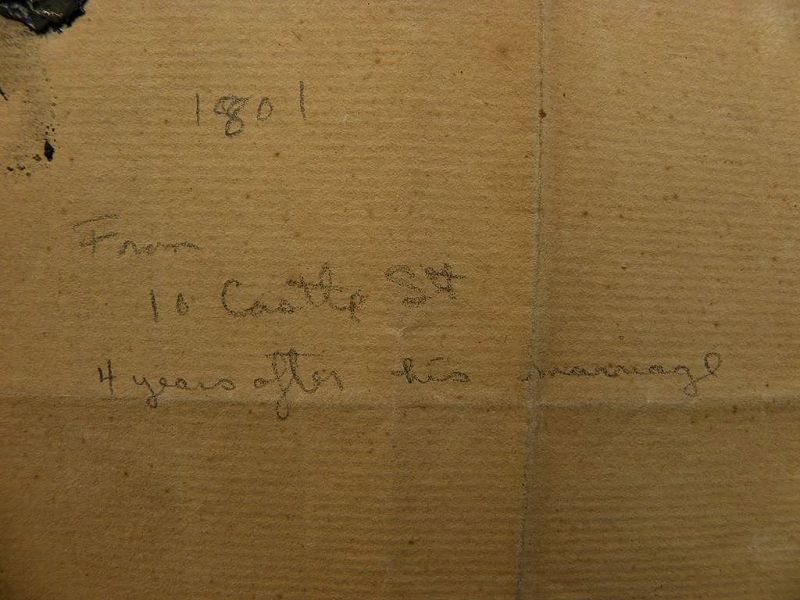 1801
From
10 Castle St
4 years after his marriage